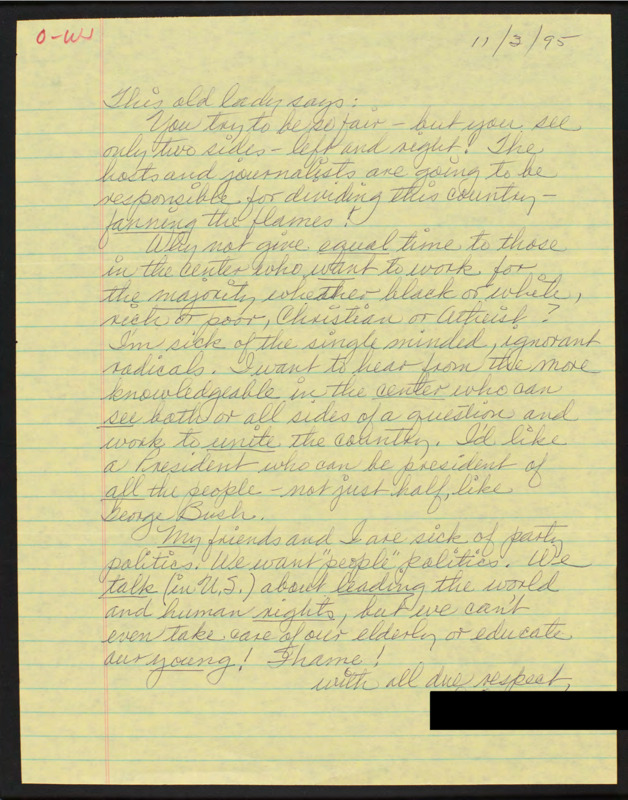 O-W
11/3/95
This old lady says:
You try to be so fair - but you see
only two sides - left and right! The
hosts and journalists are going to be
responsible for dividing this country -
fanning the flames!
Why not give equal time to those
in the center who want to work for
the majority whether black or white,
rich or poor, Christian or Atheist?
I'm sick of the single minded, ignorant
radicals. I want to hear from the more
knowledgeable in the center who can
see both or all sides of a question and
work to unite the country. I'd like
a President who can be president of
all the people - not just half, like
George Bush.
My friends and I are sick of party
politics. We want "people" politics. We
talk (in U.S.) about leading the world
and human rights, but we can't
even take care of our elderly or educate
our young! Shame!
with all due respect,